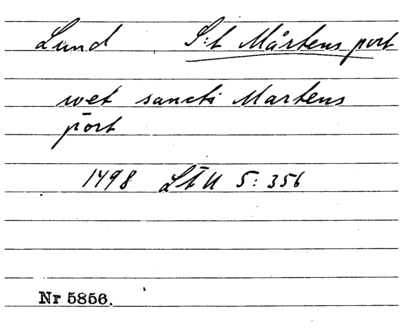 Lund S:t Mårtens port
wet sancti Martens
port
1498 LÄU 5: 356
Nr 5856.